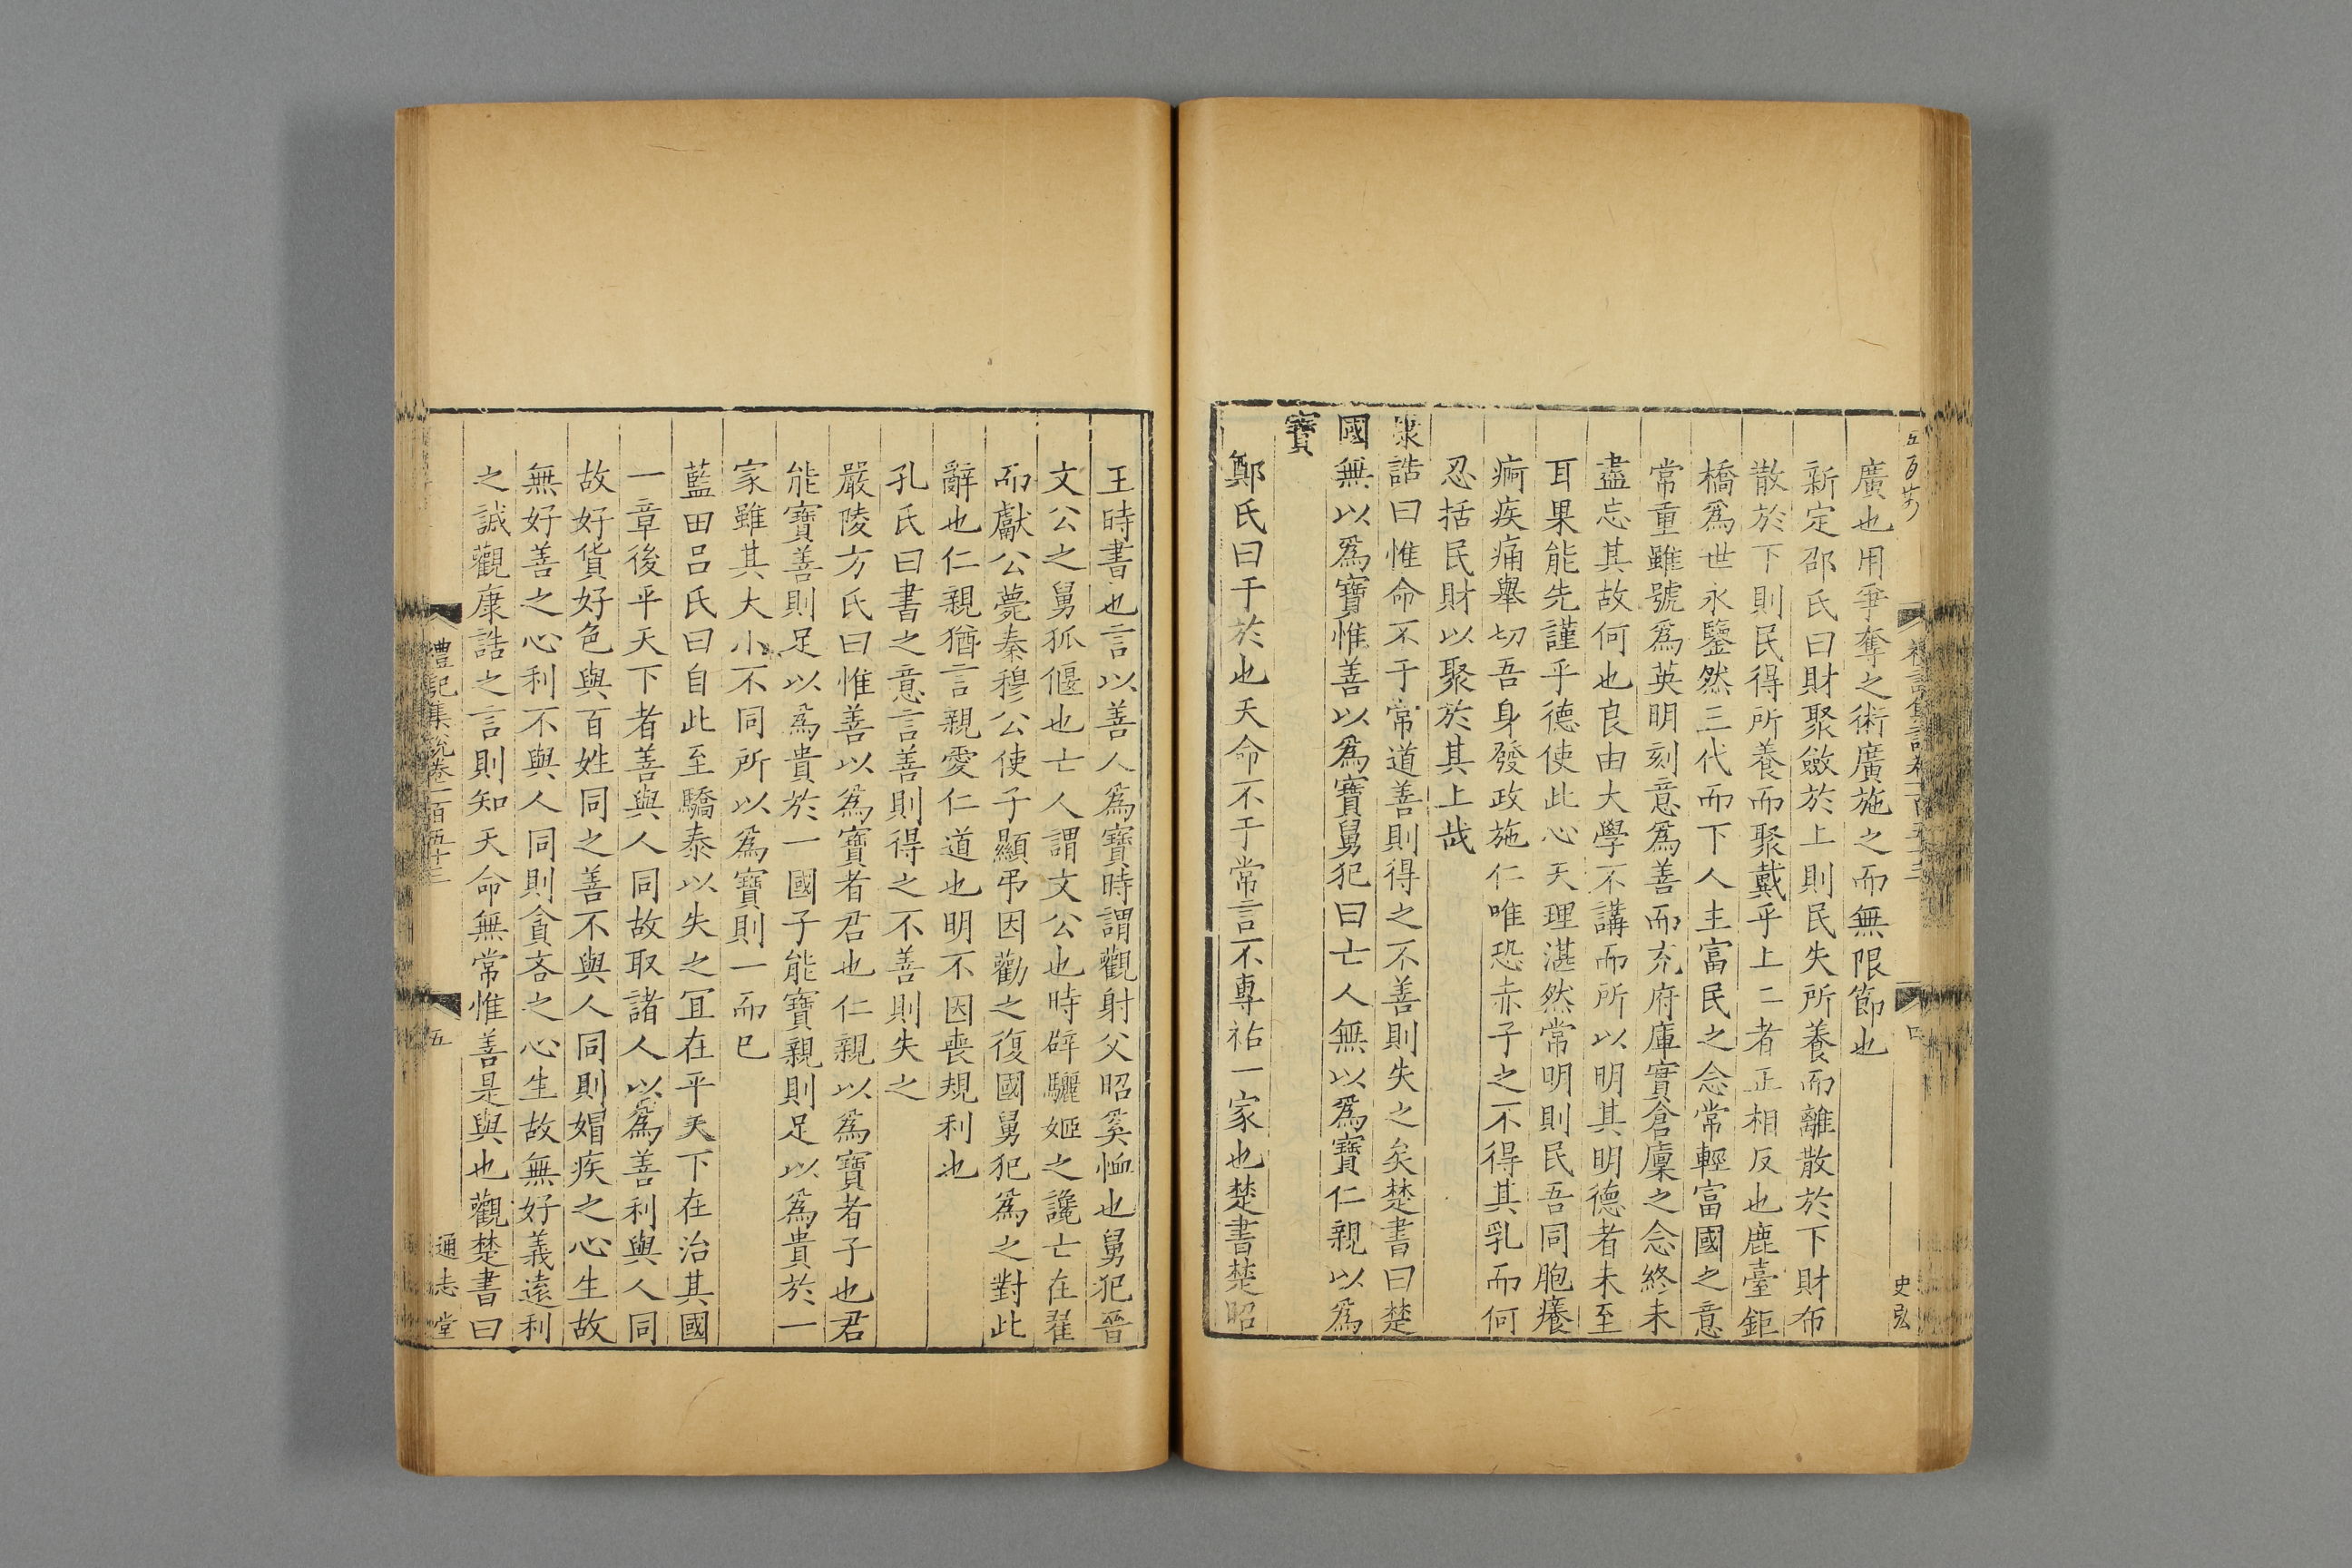 廣也用爭奪之術廣施之而無限節也
新定邵氏曰財聚斂於上則民失所養而離散於下財布
散於下則民得所養而聚戴乎上二者正相反也鹿臺鉅
橋爲世永鑒然三代而下人主富民之念常輕富國之意
常重雖號爲英明刻意爲善而充府庫實倉廩之念終未
盡忘其故何也良由大學不講而所以明其明德者未至
耳果能先謹乎德使此心天理湛然常明則民吾同胞癢
痾疾痛舉切吾身發政施仁唯恐赤子之不得其乳而何
忍括民財以聚於其上哉
康誥曰惟命不于常道善則得之不善則失之矣楚書曰楚
國無以爲寶惟善以爲寶舅犯曰亡人無以爲寶仁親以爲
寶
鄭氏曰于於也天命不于常言不專祐一家也楚書楚昭
史弘
王時書也言以善人爲寶時謂觀射父昭奚恤也舅犯晉
文公之舅狐偃也亡人謂文公也時辟驪姬之讒亡在翟
而獻公薨秦穆公使子顯弔因勸之復國舅犯爲之對此
辭也仁親猶言親愛仁道也明不因喪規利也
孔氏曰書之意言善則得之不善則失之
嚴陵方氏曰惟善以爲寶者君也仁親以爲寶者子也君
能寶善則足以爲貴於一國子能寶親則足以爲貴於一
家雖其大小不同所以爲寶則一而已
藍田呂氏曰自此至驕泰以失之冝在平天下在治其國
一章後平天下者善與人同故取諸人以爲善利與人同
故好貨好色與百姓同之善不與人同則媢疾之心生故
無好善之心利不與人同則貪吝之心生故無好義遠利
之誠觀康誥之言則知天命無常惟善是與也觀楚書曰
禮記集說卷一百五十三
五
通志堂